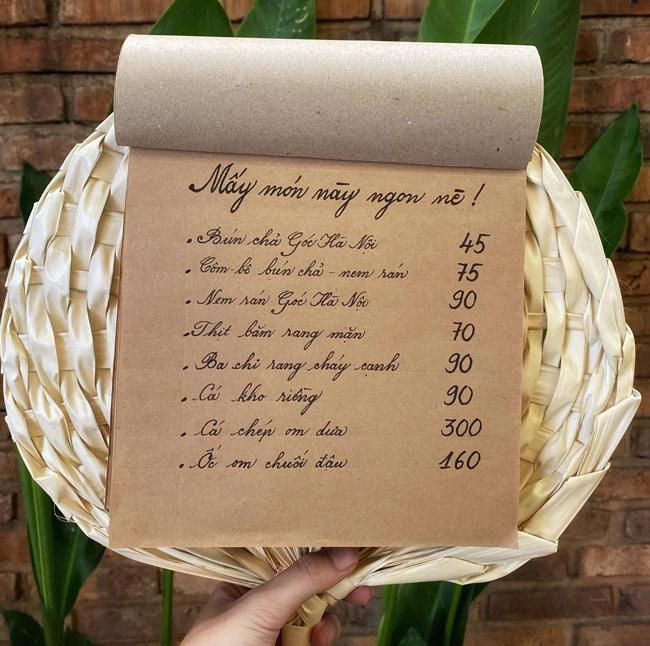 Mấy món này ngon nè!
. Bún chả Góc Hà Nội 45
. Côm-bô bún chả - nem rán 75
. Nem rán Góc Hà Nội 90
. Thịt băm rang mặn 70
. Ba chỉ rang cháy cạnh 90
. Cá kho riềng 90
. Cá chép om dưa 300
. Ốc om chuối đậu 160